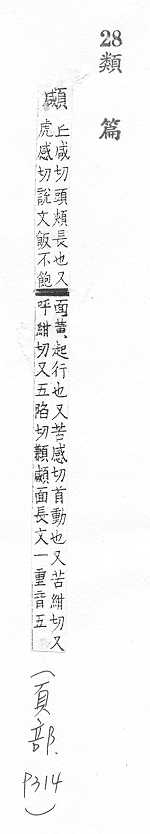 28
類篇
顑
丘咸切頭頰長也又
虎感切說文飯不飽
面黃起行也又苦感切首動也又苦紺切又
呼紺切又五陷切顜顑面長文一重音五
(頁部.
P314)